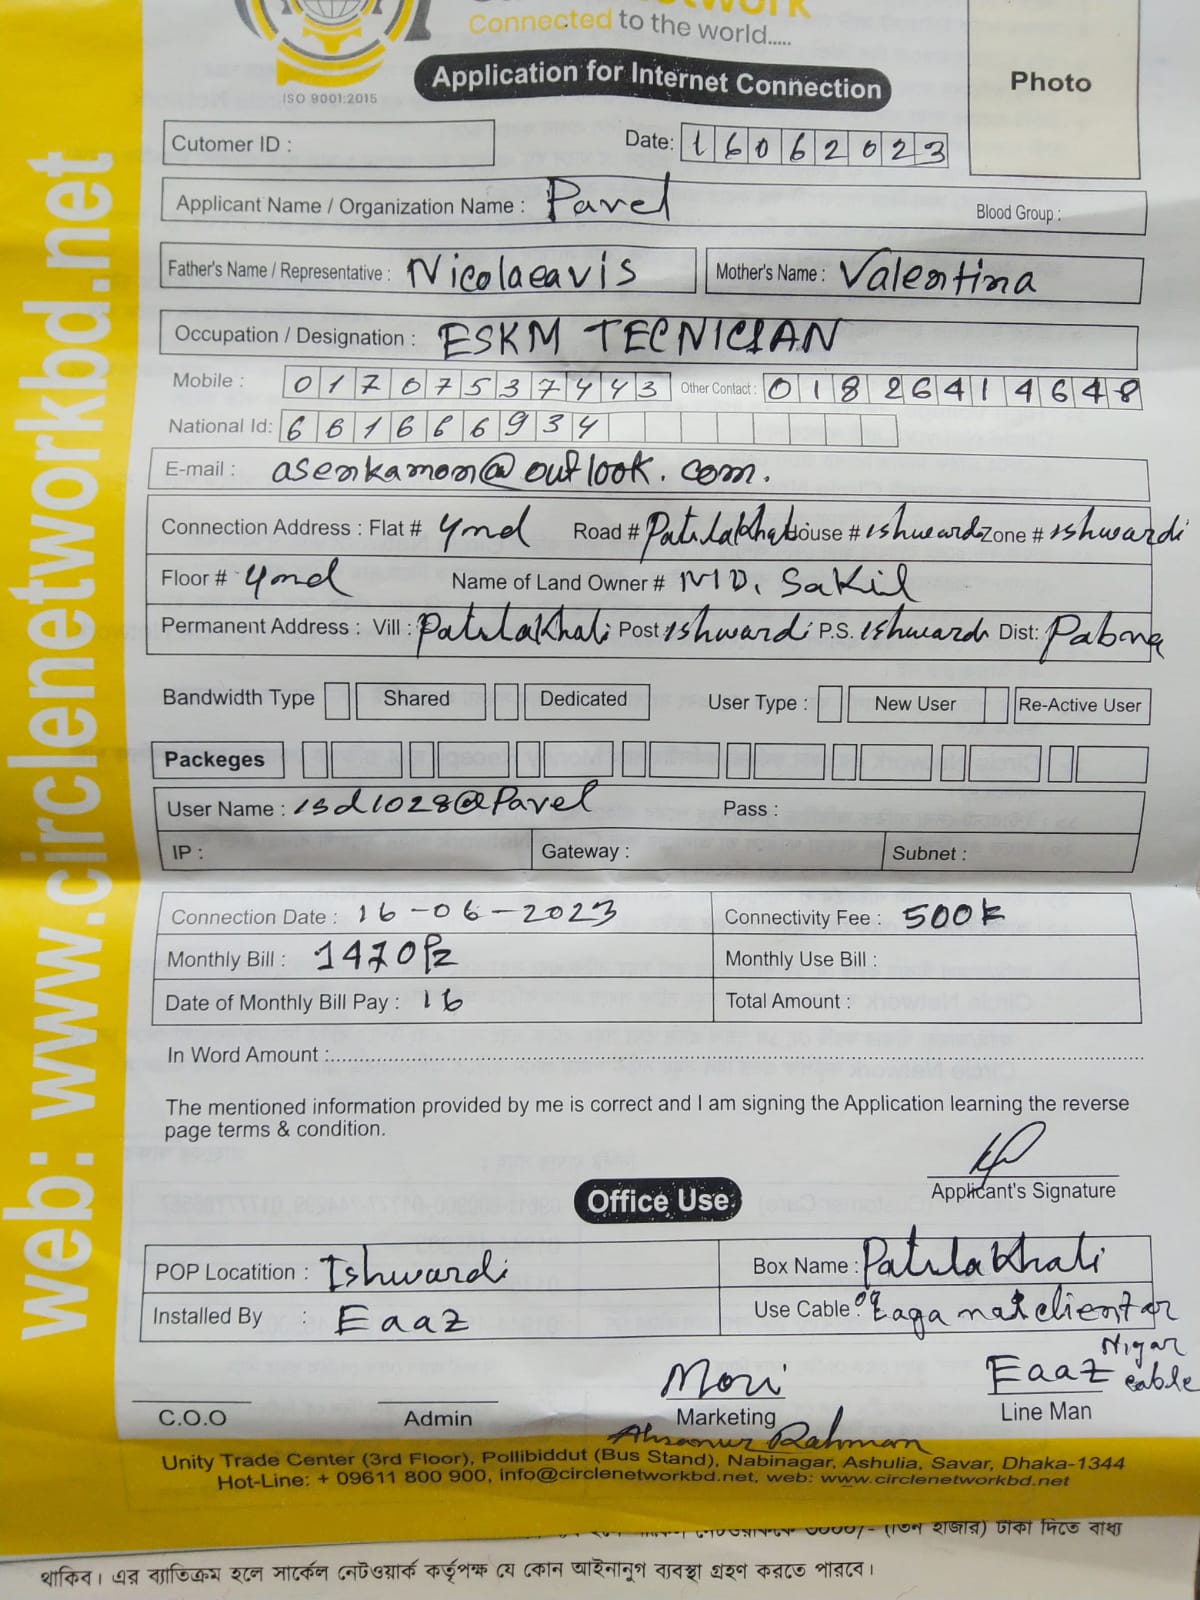 Connected to the world.....
ISO 9001:2015
Application for Internet Connection
Photo
Cutomer ID :
Date: 16062023
Applicant Name / Organization Name : Pavel
Blood Group :
Father's Name / Representative : Nicolaeavis
Mother's Name : Valentina
Occupation / Designation : ESKM TECNICIAN
Mobile : 01707537443 Other Contact : 01826414648
National Id: 6616666934
E-mail : asenkamon@outlook.com.
Connection Address : Flat # 4nd Road # Patilakhali House # ishwardi Zone # ishwardi
Floor # 4nd Name of Land Owner # MD. Sakil
Permanent Address : Vill : Patilakhali Post ishwardi P.S. ishwardi Dist: Pabna
Bandwidth Type Shared Dedicated User Type : New User Re-Active User
Packeges
User Name : isd1028@Pavel Pass :
IP : Gateway : Subnet :
Connection Date : 16-06-2023 Connectivity Fee : 500
Monthly Bill : 1470 Monthly Use Bill :
Date of Monthly Bill Pay : 16 Total Amount :
In Word Amount :
The mentioned information provided by me is correct and I am signing the Application learning the reverse
page terms & condition.
Applicant's Signature
Office Use
POP Locatition : Ishwardi Box Name : Patilakhali
Installed By : Eaaz Use Cable :
cable
Eaaz
C.O.O Admin Marketing Line Man
Ahsanur Rahman
Unity Trade Center (3rd Floor), Pollibiddut (Bus Stand), Nabinagar, Ashulia, Savar, Dhaka-1344
Hot-Line: + 09611 800 900, info@circlenetworkbd.net, web: www.circlenetworkbd.net
web: www.circlenetworkbd.net
৩০০০/- (তিন হাজার) টাকা দিতে বাধ্য
থাকিব। এর ব্যতিক্রম হলে সার্কেল নেটওয়ার্ক কর্তৃপক্ষ যে কোন আইনানুগ ব্যবস্থা গ্রহণ করতে পারবে।